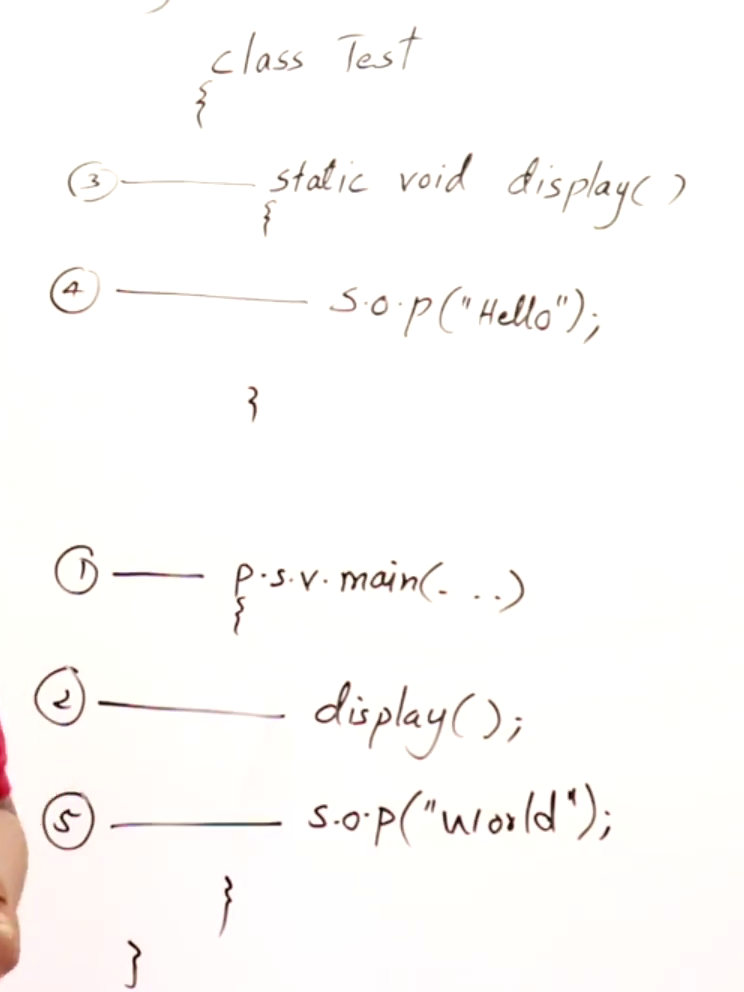 class Test
{
③ static void display()
{
④ s.o.p("Hello");
}
① p.s.v.main(...)
{
② display();
⑤ s.o.p("world");
}
}